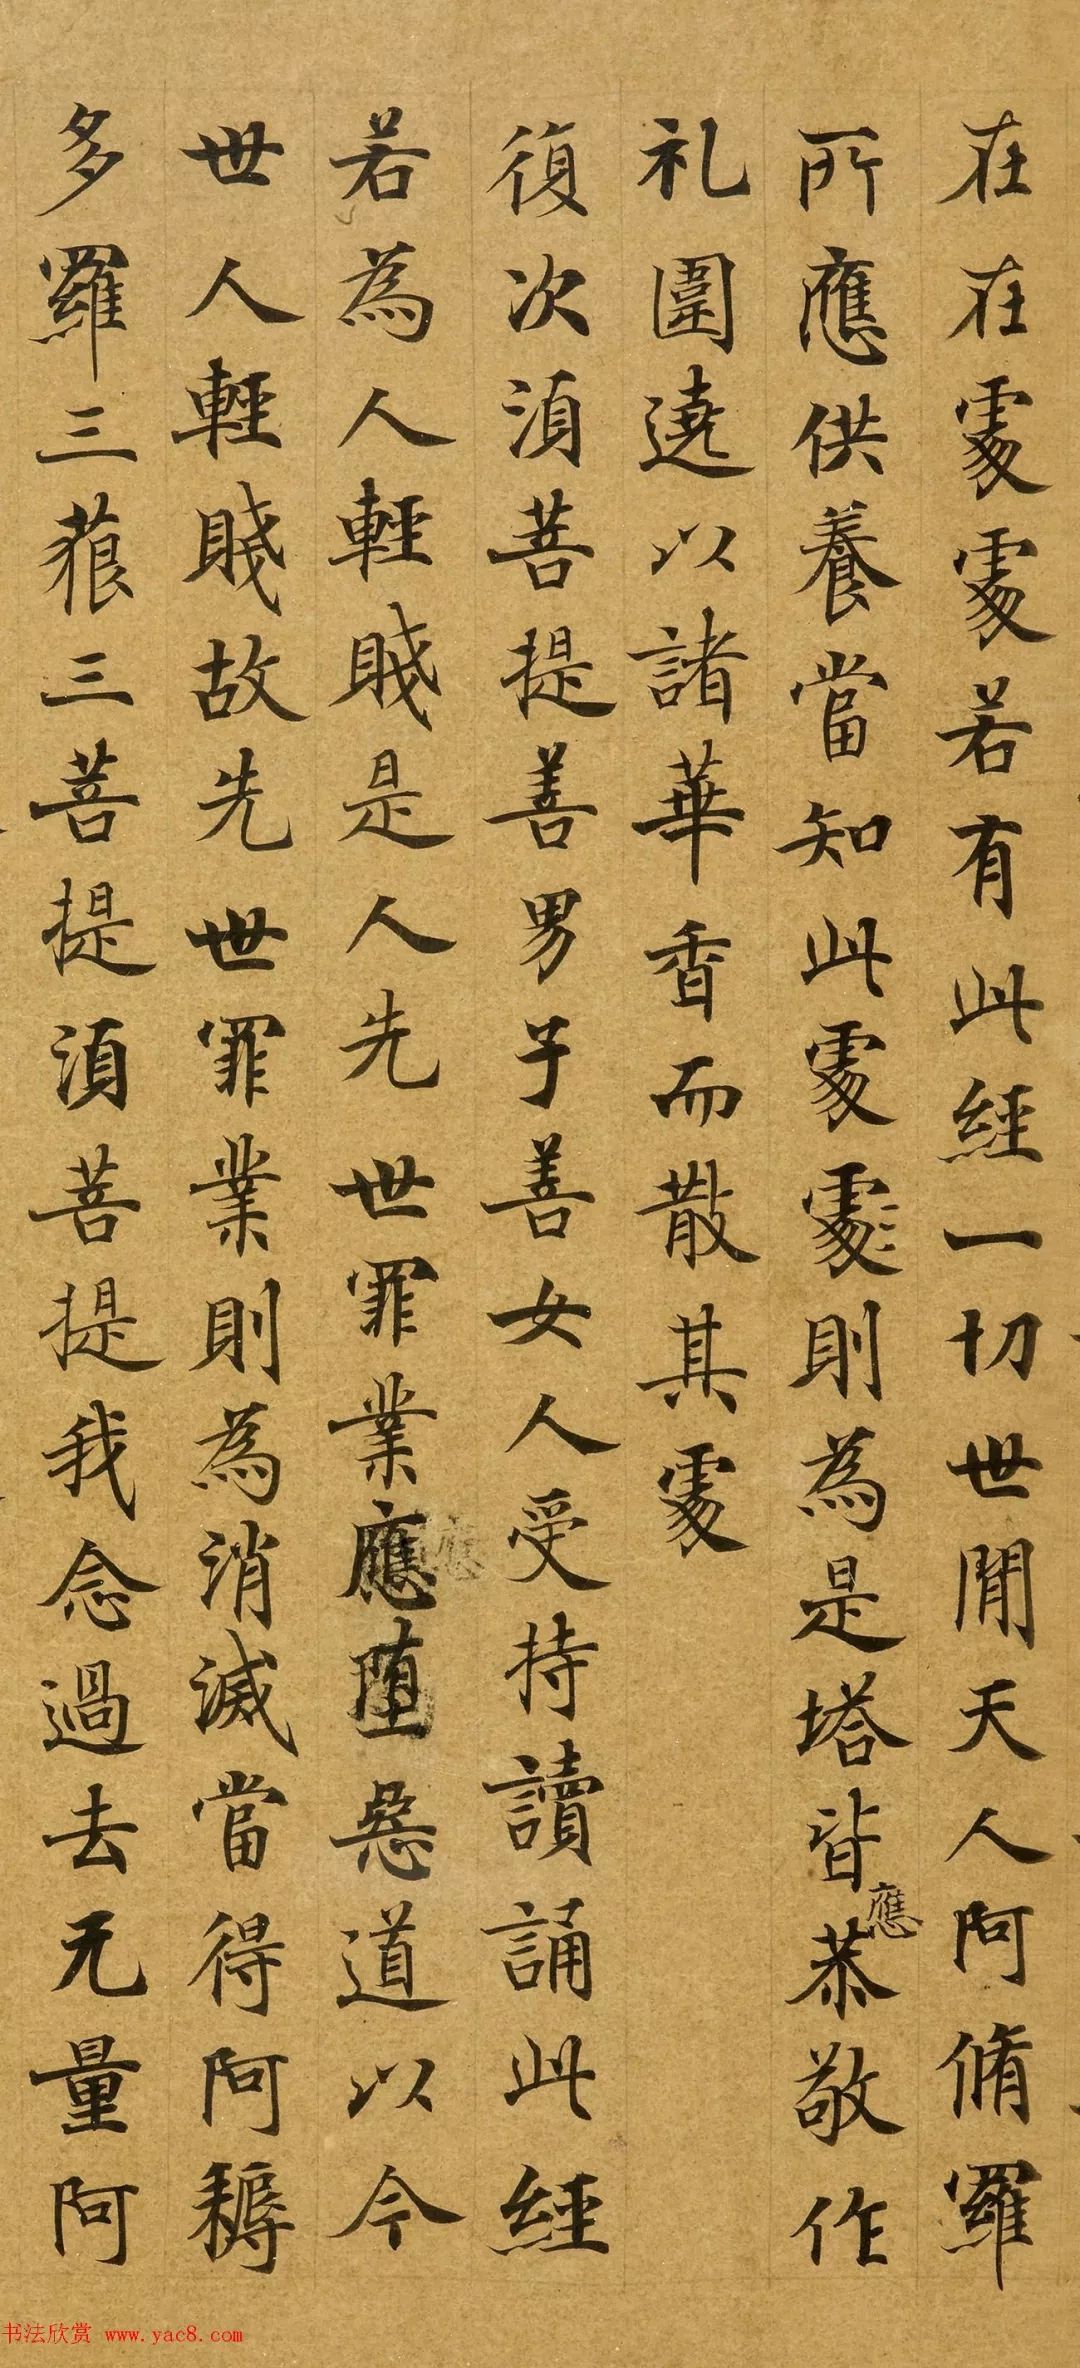 在在處處若有此經一切世閒天人阿脩羅
所應供養當知此處處則為是塔皆應恭敬作
礼圍遶以諸華香而散其處
復次湏菩提善男子善女人受持讀誦此經
若為人輕賤是人先世罪業應墮惡道以今
世人輕賤故先世罪業則為消滅當得阿耨
多羅三藐三菩提湏菩提我念過去无量阿
应
书法欣赏 www.yac8.com